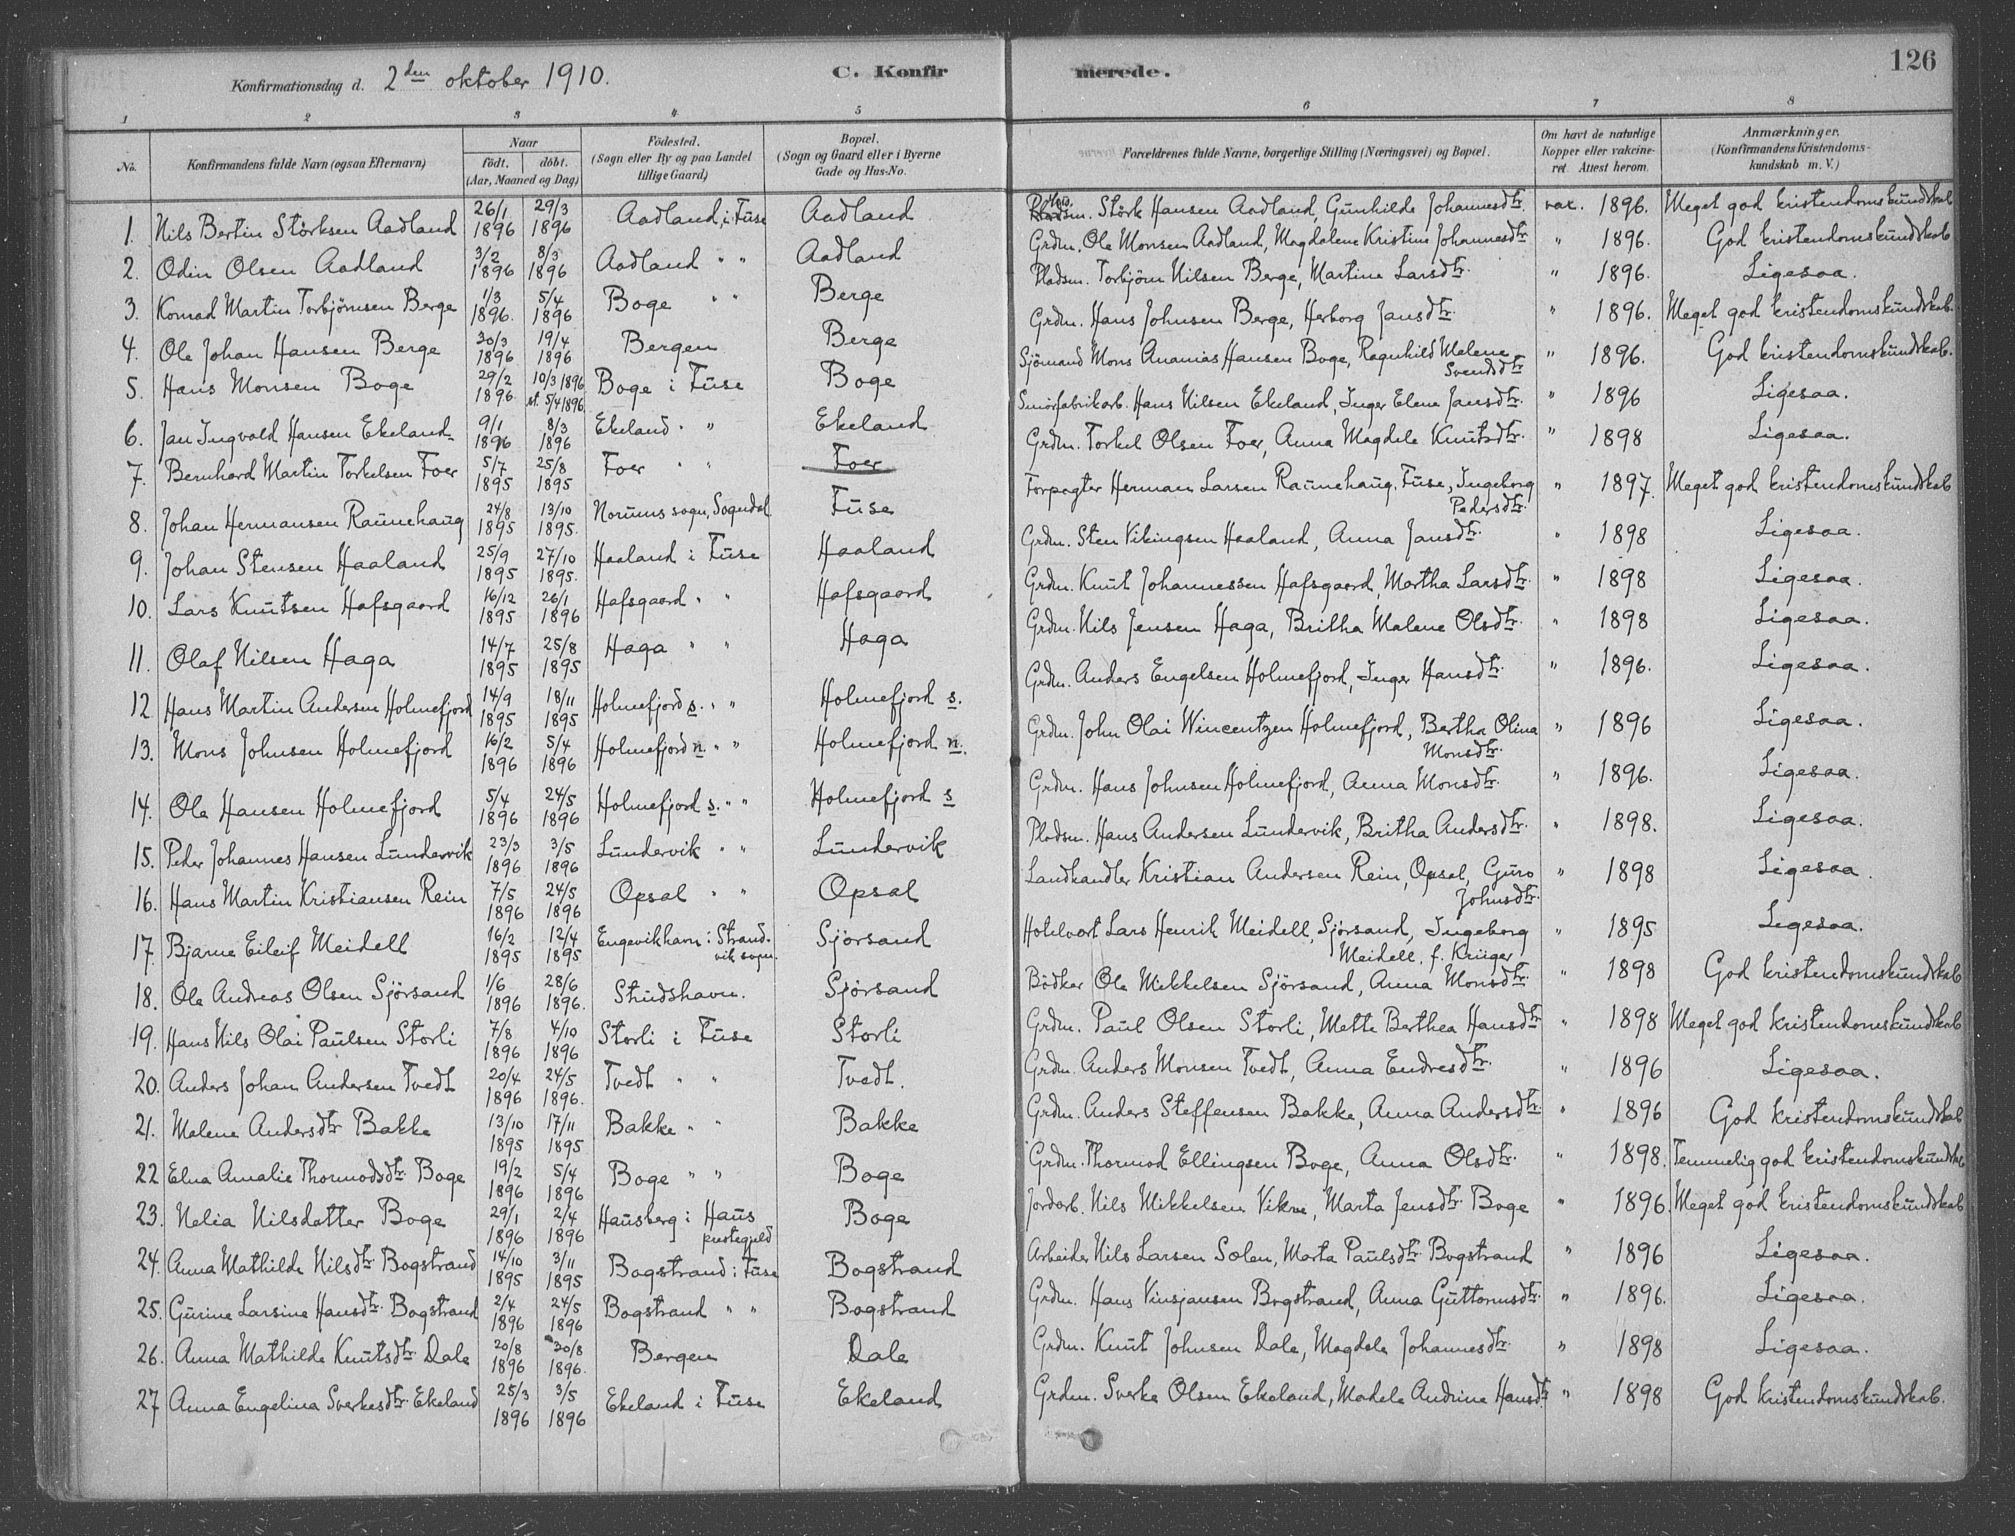 Konfirmationsdag d. 2den oktober 1910. C. Konfirmerede. 126
1 2 3 4 5 6 7 8
No. Konfirmandens fulde Navn (ogsaa Efternavn) Naar födt. döbt. (Aar, Maaned og Dag) Födested. (Sogn eller By og paa Landet tillige Gaard) Bopæl. (Sogn og Gaard eller i Byerne Gade og Hus-No. Forældrenes fulde Navne, borgerlige Stilling (Næringsvei) og Bopæl. Om havt de naturlige Kopper eller vakcineret. Attest herom. Anmærkninger. (Konfirmandens Kristendomskundskab m. V.)
1. Nils Bertin Störksen Aadland 26/1 1896 29/3 1896 Aadland i Fuse Aadland Störk Hansen Aadland, Gunhilde Johannesdtr. vax. 1896. Meget god kristendomskundskab
2. Odin Olsen Aadland 3/2 1896 8/3 1896 Aadland " " Aadland Grdm. Ole Monsen Aadland, Magdalene Kristine Johannesdtr " 1896. God kristendomskundskab
3. Konrad Martin Torbjörnsen Berge 1/3 1896. 5/4 1896 Boge " " Berge Pladsm. Torbjörn Nilsen Berge, Martine Larsdtr. " 1896. Ligesaa.
4. Ole Johan Hansen Berge 30/3 1896 19/4 1896 Bergen Berge Grdm. Hans Johnsen Berge, Herborg Jansdtr. " 1896. Meget god kristendomskundskab.
5. Hans Monsen Boge 29/2 1896 10/3 1896 st. 5/4 1896. Boge i Fuse Boge Sjömand Mons Ananias Hansen Boge, Ragnhild Malene Svendsdtr " 1896. God kristendomskundskab.
6. Jan Ingvald Hansen Ekeland 9/1 1896 8/3 1896 Ekeland " " Ekeland Smörfabrikarb. Hans Nilsen Ekeland, Inger Elene Jansdtr. " 1896 Ligesaa.
7. Bernhard Martin Torkelsen Foer 5/7 1895 25/8 1895 Foer " " Foer Grdm. Torkel Olsen Foer, Anna Magdele Knutsdtr. " 1898 Ligesaa.
8. Johan Hermansen Raunehaug 24/8 1895 13/10 1895. Norums sogn, Sogndal Fuse Forpagter Herman Larsen Raunehaug, Fuse, Ingeborg Pedersdtr. " 1897. Meget god kristendomskundskab
9. Johan Stensen Haaland 25/9 1895 27/10 1895. Haaland i Fuse Haaland Grdm. Sten Vikingsen Haaland, Anna Jansdtr. " 1898 Ligesaa.
10. Lars Knutsen Hafsgaard 16/12 1895 26/1 1896 Hafsgaard " " Hafsgaard Grdm. Knut Johannessen Hafsgaard, Martha Larsdtr. " 1898 Ligesaa.
11. Olaf Nilsen Haga 14/7 1895 25/8 1895 Haga " " Haga Grdm. Nils Jensen Haga, Britha Malene Olsdtr. " 1898 Ligesaa.
12. Hans Martin Andersen Holmefjord 14/9 1895 18/11 1895 Holmefjord s. " " Holmefjord s. Grdm. Anders Engelsen Holmefjord, Inger Hansdtr " 1896. Ligesaa.
13. Mons Johnsen Holmefjord 16/2 1896 5/4 1896 Holmefjord n. " " Holmefjord n. Grdm. John Olai Wincentzen Holmefjord, Bertha Olina Monsdtr. " 1896 Ligesaa.
14. Ole Hansen Holmefjord 5/4 1896 24/5 1896 Holmefjord s. " " Holmefjord s Grdm. Hans Johnsen Holmefjord, Anna Monsdtr. " 1896. Ligesaa.
15. Peder Johannes Hansen Lundervik 23/3 1896 3/5 1896 Lundervik " " Lundervik Pladsm. Hans Andersen Lundervik, Britha Andersdtr. " 1898. Ligesaa.
16. Hans Martin Kristiansen Rein 7/5 1896 24/5 1896 Opsal " " Opsal Landhandler Kristian Andersen Rein, Opsal, Guro Johnsdtr. " 1898 Ligesaa
17. Bjarne Eileif Meidell 16/2 1895 12/4 1895 Engevikhavn i Strandvik sogn. Sjörsand Hotelvert Lars Henrik Meidell, Sjörsand, Ingeborg Meidell f. Krüger " 1895 Ligesaa.
18. Ole Andreas Olsen Sjörsand 1/6 1896 28/6 1896. Studshavn. Sjörsand Bödker Ole Mikkelsen Sjörsand, Anna Monsdtr. " 1898 God kristendomskundskab
19. Hans Nils Olai Paulsen Storli 7/8 1896 4/10 1896 Storli i Fuse Storli Grdm. Paul Olsen Storli, Mette Berthea Hansdtr " 1898 Meget god kristendomskundskab
20. Anders Johan Andersen Tvedt 20/4 1896 24/5 1896. Tvedt " " Tvedt. Grdm. Anders Monsen Tvedt, Anna Endresdtr. " 1896 Ligesaa.
21. Malene Andersdtr Bakke 13/10 1895 17/11 1895 Bakke " " Bakke Grdm. Anders Steffensen Bakke, Anna Andersdtr " 1896 God kristendomskundskab
22 Elna Amalie Thormodsdtr. Boge 19/2 1896 5/4 1896 Boge " " Boge Grdm. Thormod Ellingsen Boge, Anna Olsdtr. " 1898. Temmelig god kristendomskundskab
23. Nelia Nilsdatter Boge 29/1 1896 2/4 1896 Hausberg i Haus prestegjeld Boge Jordarb. Nils Mikkelsen Vikne, Marta Jensdtr. Boge " 1896. Meget god kristendomskundskab
24. Anna Mathilde Nilsdtr. Bogstrand 14/10 1895 3/11 1895 Bogstrand i Fuse Bogstrand Arbeider Nils Larsen Solen, Marta Paulsdtr. Bogstrand " 1896 Ligesaa.
25. Gurine Larsine Hansdtr. Bogstrand 2/4 1896 24/5 1896 Bogstrand " " Bogstrand Grdm. Hans Vinsjansen Bogstrand, Anna Guttormsdtr. " 1896. Ligesaa.
26. Anna Mathilde Knutsdtr. Dale 20/8 1896 30/8 1896. Bergen Dale Grdm. Knut Johnsen Dale, Magdele Johannesdtr. " 1898 Ligesaa.
27 Anna Engelina Sverkesdtr. Ekeland 25/3 1896 3/5 1896 Ekeland i Fuse Ekeland Grdm. Sverke Olsen Ekeland, Madele Andrine Hansdtr " 1898 God kristendomskundskab.